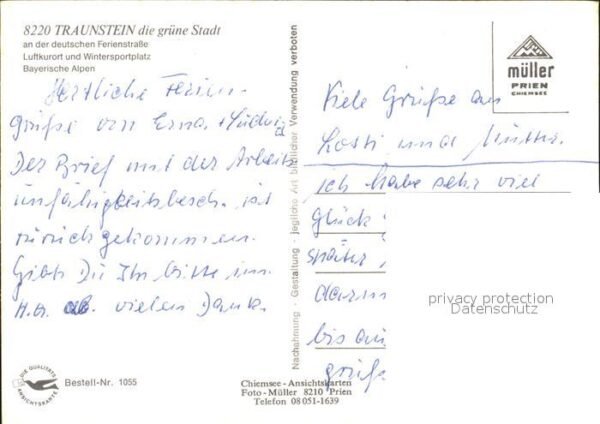 8220 TRAUNSTEIN die grüne Stadt
an der deutschen Ferienstraße
Luftkurort und Wintersportplatz
Bayerische Alpen
Herzliche Ferien-
grüße von Erna + Ludwig
Der Brief mit der Arbeits
unfähigkeitsbesch. ist
zurückgekommen.
Gibt Du Ihn bitte im
H.A. ab. vielen Dank.
DIE QUALITÄTS
ANSICHTSKARTE
Bestell-Nr. 1055
Nachahmung · Gestaltung · jegliche Art bildlicher Verwendung verboten
Chiemsee - Ansichtskarten
Foto - Müller 8210 Prien
Telefon 08051-1639
müller
PRIEN
CHIEMSEE
Viele Grüße an
und Mutter.
ich habe sehr viel
Glück
später
darm
bis
grüß
privacy protection
Datenschutz